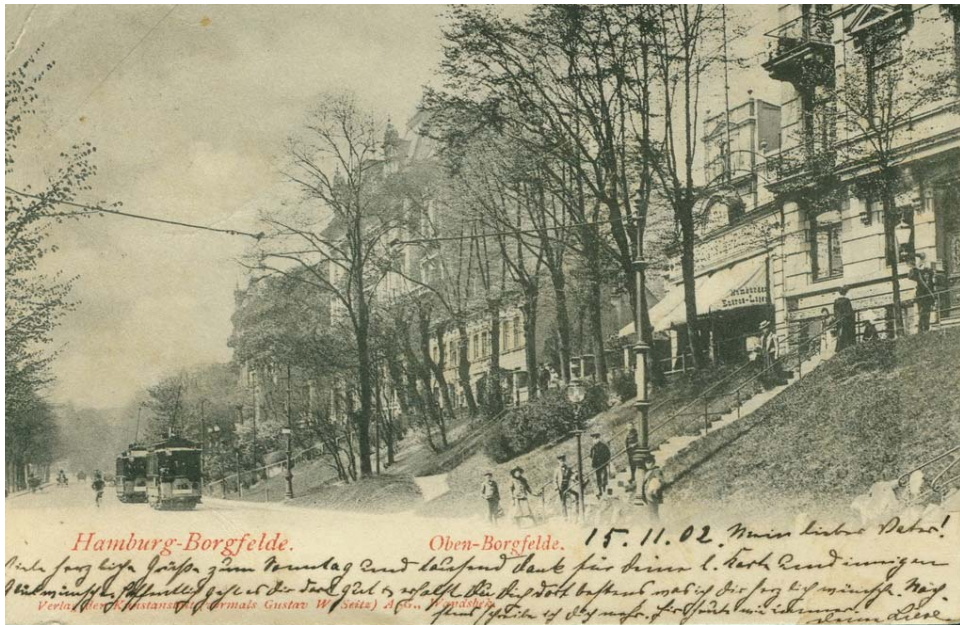 Hamburg-Borgfelde.
Oben-Borgfelde.
15.11.02. Mein lieber Vater!
Viele herzliche Grüße zum Sonntag und tausend Dank für deine l. Karte und innigen
Glückwünsche. Hoffentlich geht es dir dort gut & erholst du dich dort bestens was ich dir herzlich wünsche. Näch-
Verlag der Kunstanstalt (vormals Gustav W. Seitz) A.G., Wandsbek.
stens schreibe ich dir mehr. Für heute wie immer
deine Liese